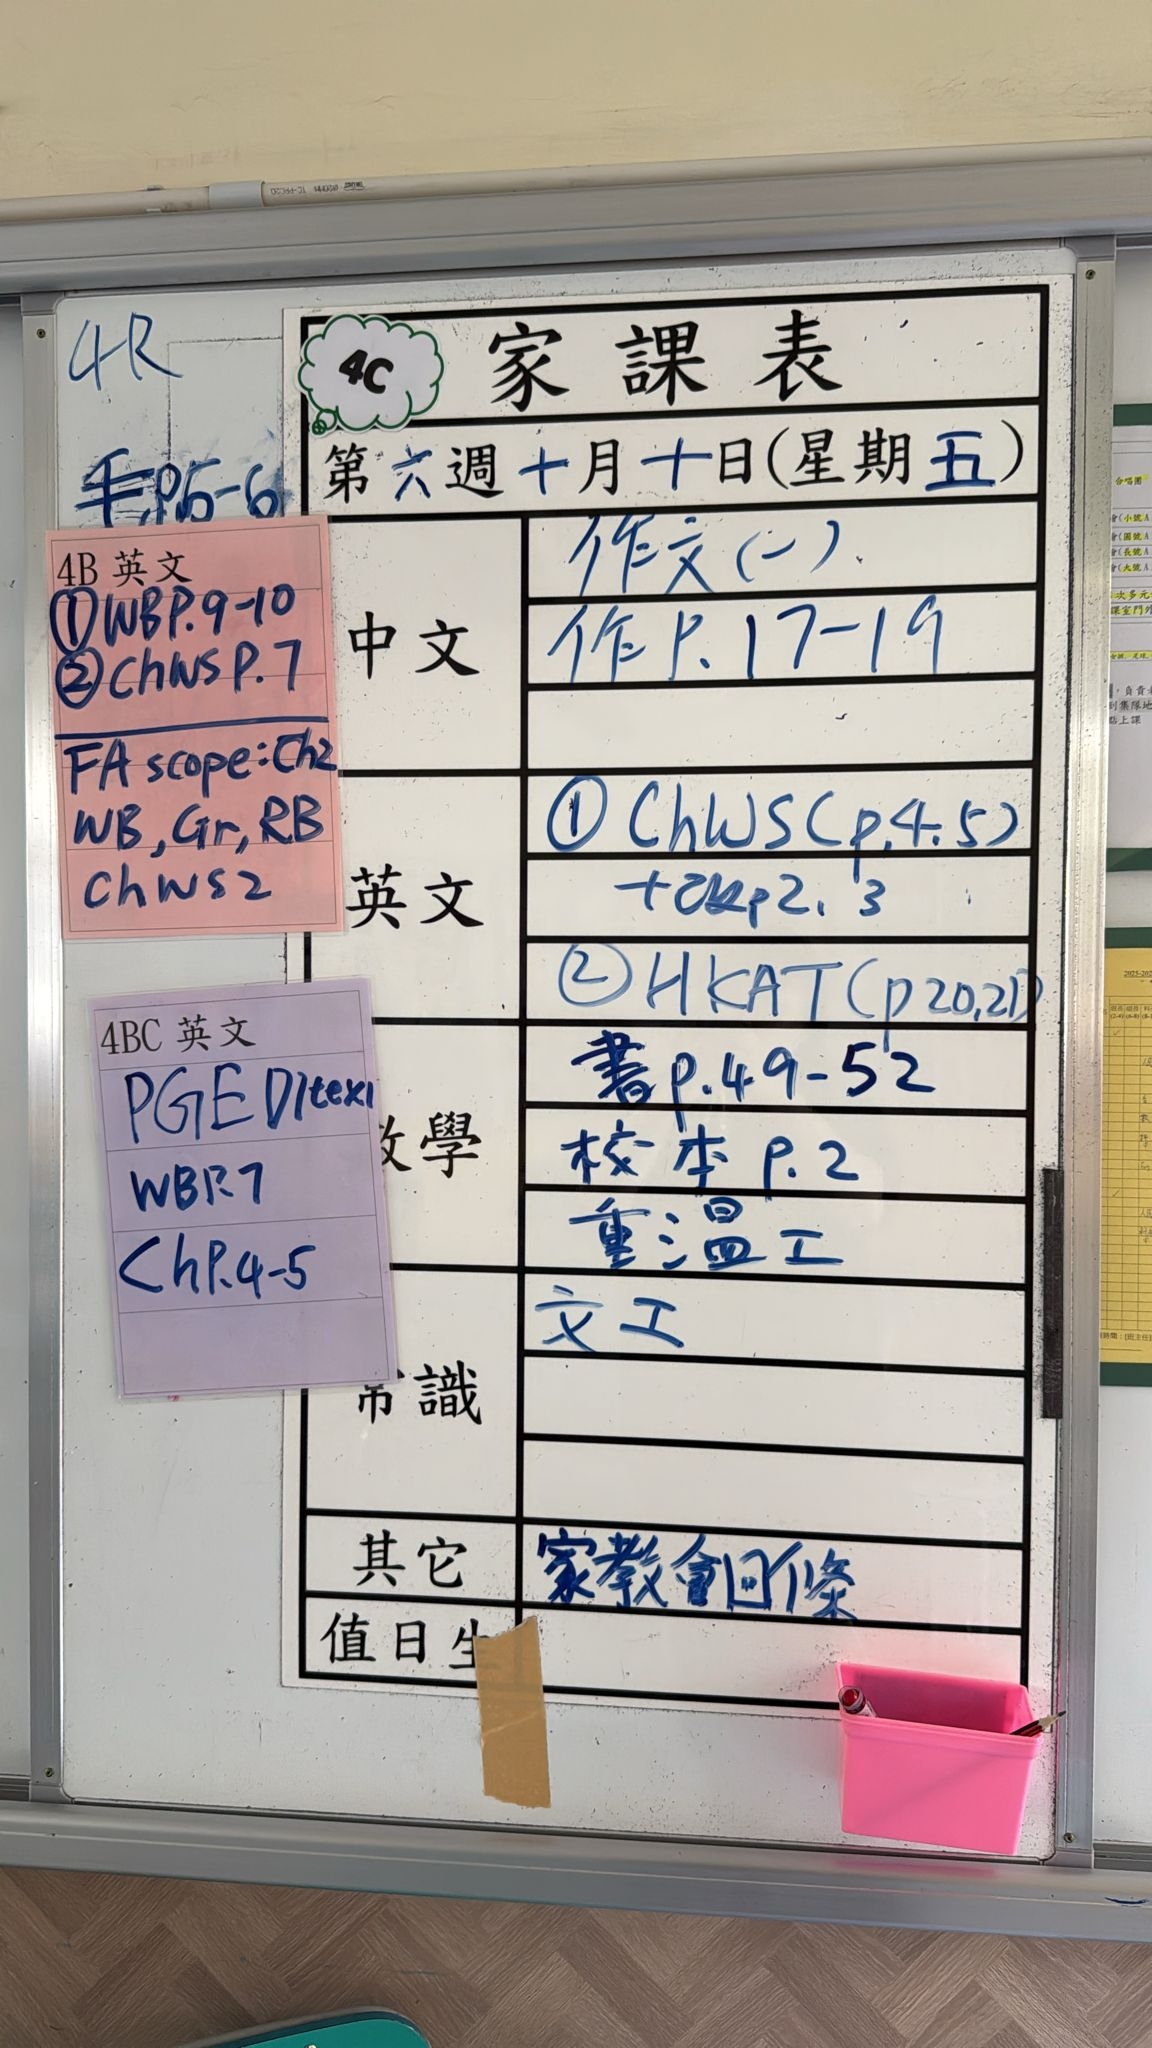 4R
4C
家課表
第六週十月十日(星期五)
手P.5-6
4B 英文
①WBP.9-10
②ChWSP.7
FA scope:Ch2
WB,Gr,RB
ChWS2
4BC 英文
PGED1text1
WBP.7
ChP.4-5
中文
作文(一)
作P.17-19
英文
①ChWS(p.4.5)
p2.3
②HKAT(p20,21)
數學
書p.49-52
校本p.2
重溫工
常識
文工
其它
家教會回條
值日生
合唱團